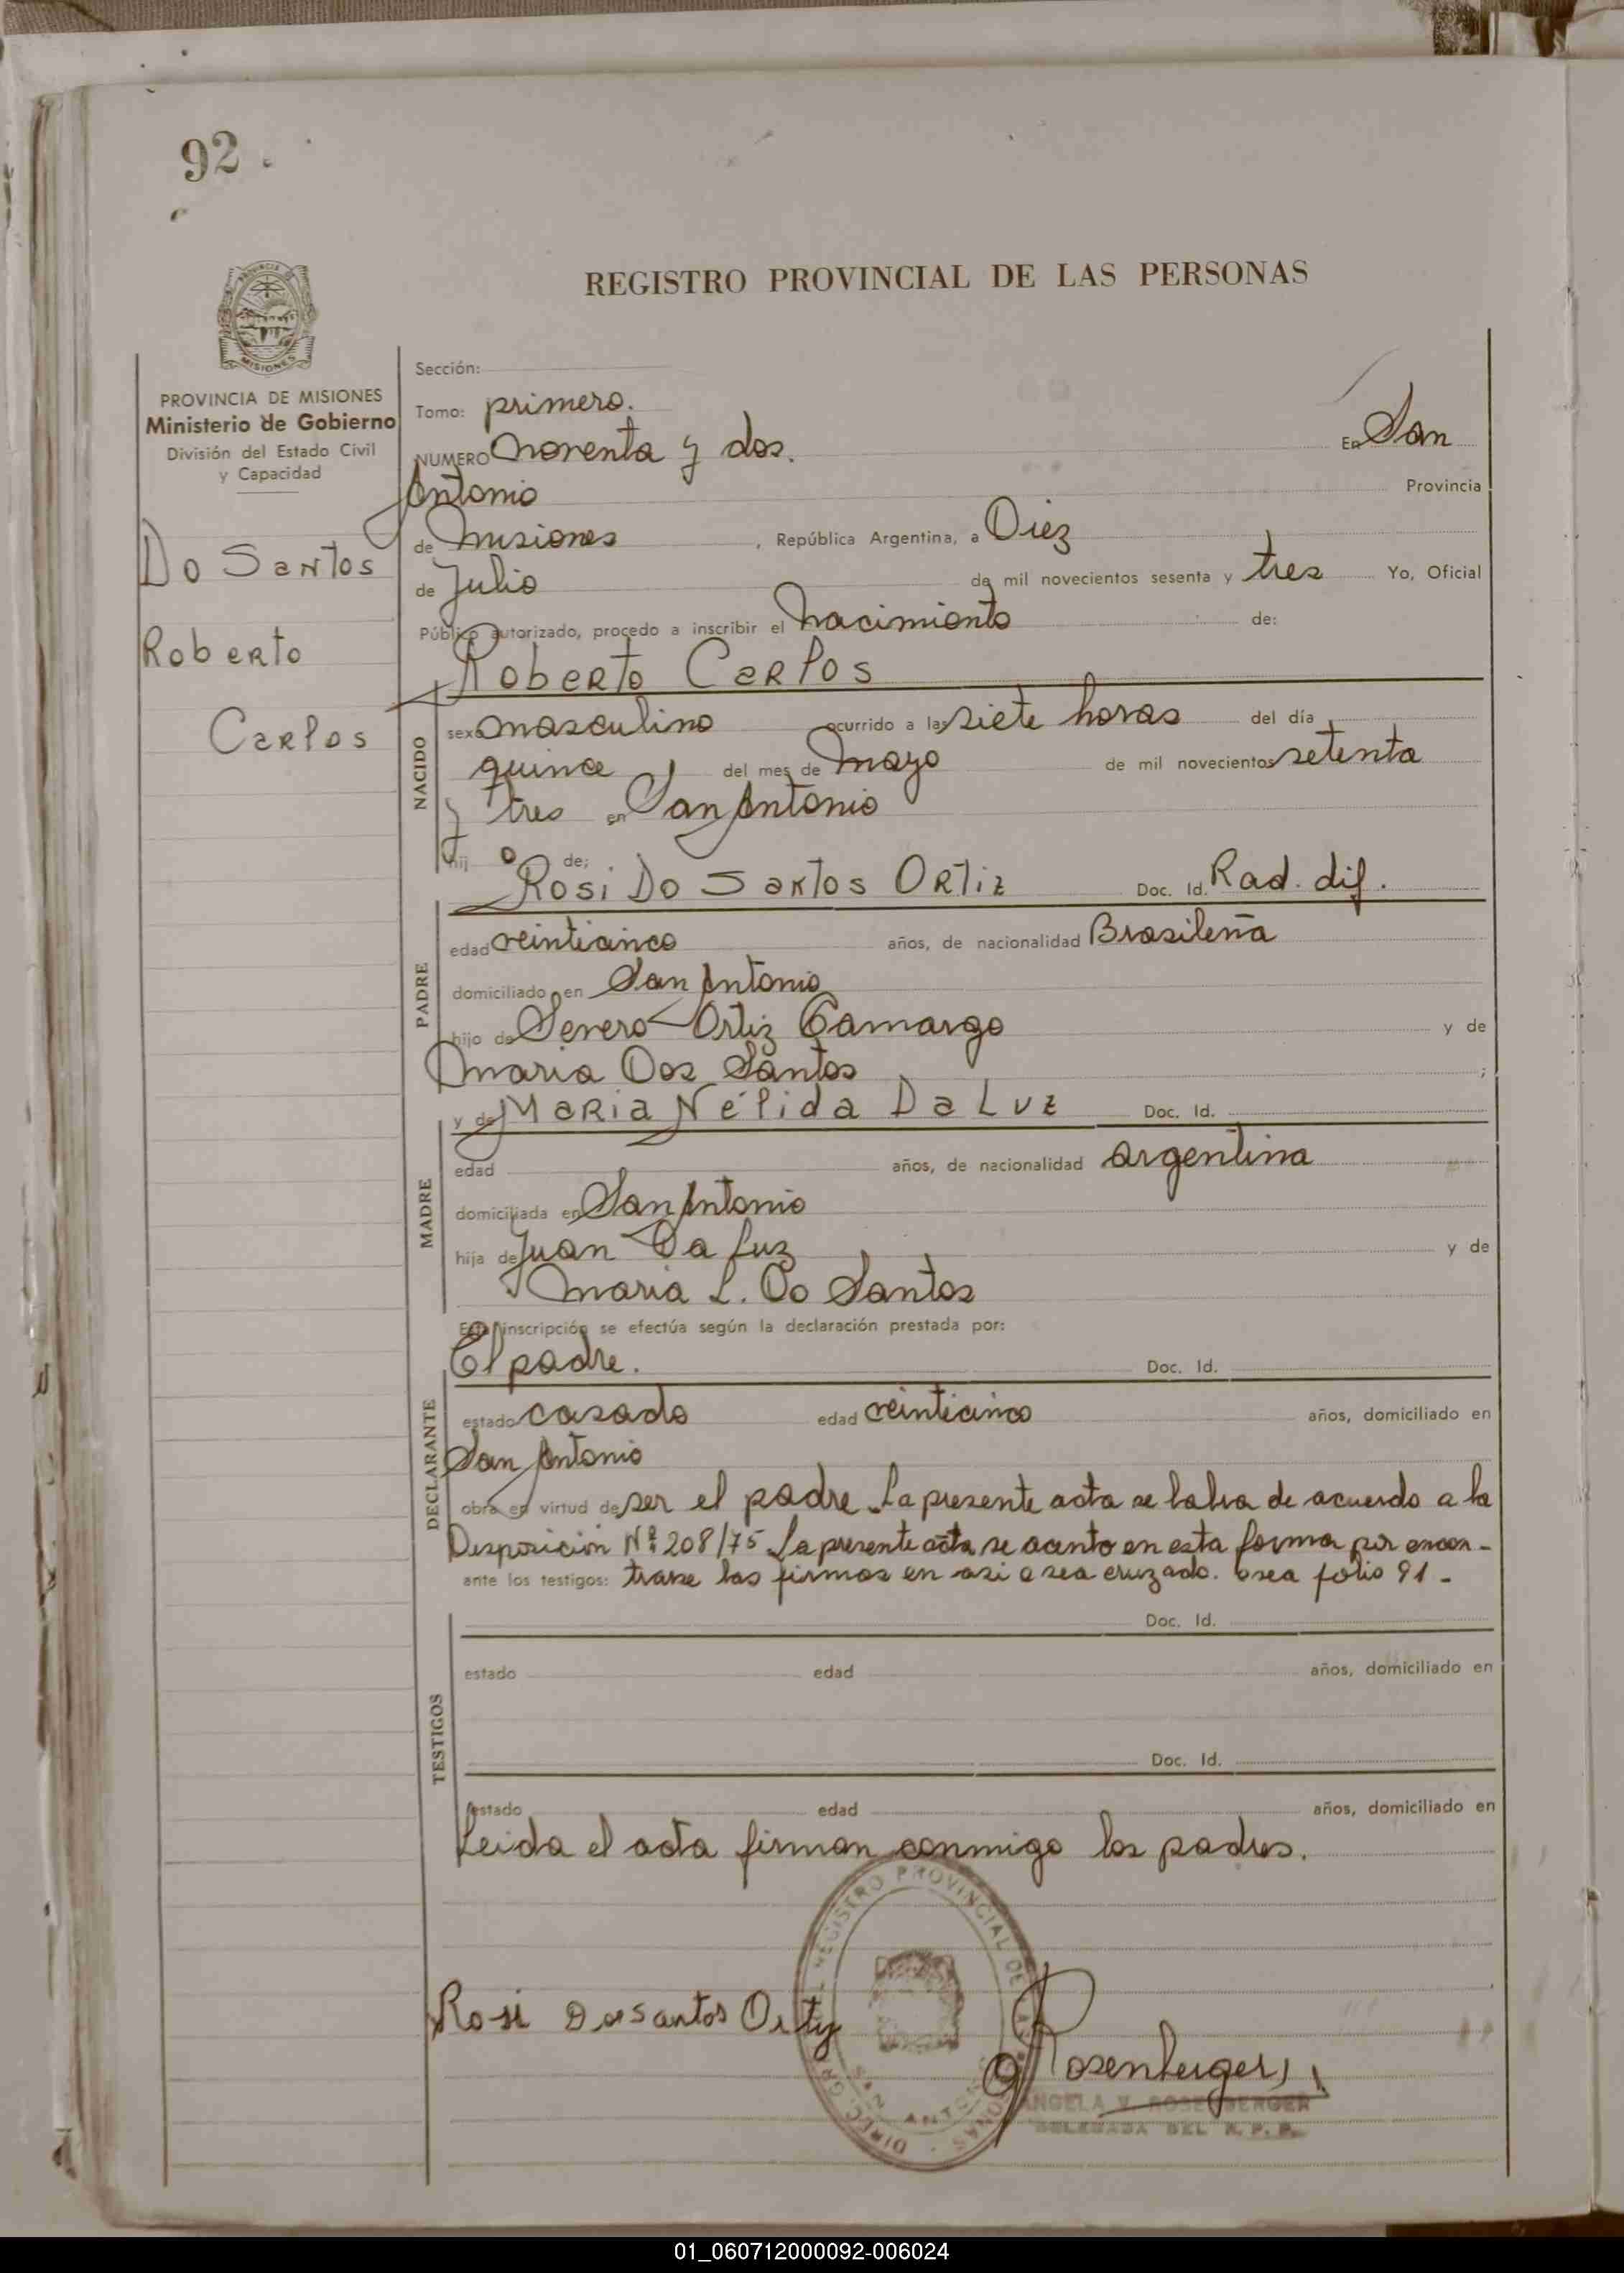 92
REGISTRO PROVINCIAL DE LAS PERSONAS
MISIONES
PROVINCIA DE MISIONES
Ministerio de Gobierno
División del Estado Civil
y Capacidad
Do Santos
Roberto
Carlos
Sección:
Tomo: primero.
NUMERO noventa y dos. En San
Antonio Provincia
de misiones , República Argentina, a Diez
de Julio de mil novecientos sesenta y tres Yo, Oficial
Público autorizado, procedo a inscribir el nacimiento de:
Roberto Carlos
NACIDO
sexo masculino ocurrido a las siete horas del día
quince del mes de mayo de mil novecientos setenta
y tres en San Antonio
hij o de:
Rosi Do Santos Ortiz Doc. Id. Rad. dif.
PADRE
edad veinticinco años, de nacionalidad Brasileña
domiciliado en San Antonio
hijo de Severo Ortiz Camargo y de
maria Dos Santos ;
y de Maria Nélida Da Luz Doc. Id.
MADRE
edad años, de nacionalidad argentina
domiciliada en San Antonio
hija de Juan Da Luz y de
maria L. Do Santos
Esta inscripción se efectúa según la declaración prestada por:
El padre. Doc. Id.
DECLARANTE
estado casado edad veinticinco años, domiciliado en
San Antonio
obra en virtud de ser el padre. La presente acta se labra de acuerdo a la
Desposicion Nº 208/75 La presente acta se acento en esta forma por encon-
ante los testigos: trarse las firmas en asi o sea cruzado. osea folio 91 -
Doc. Id.
TESTIGOS
estado edad años, domiciliado en
Doc. Id.
estado edad años, domiciliado en
Leida el acta firman conmigo los padres.
Rosi Dos Santos Ortiz
Rosenberger
REGISTRO PROVINCIAL DE LAS PERSONAS
SAN ANTONIO
ANGELA V. ROSENBERGER
DELEGADA DEL R. P. P.
01_060712000092-006024